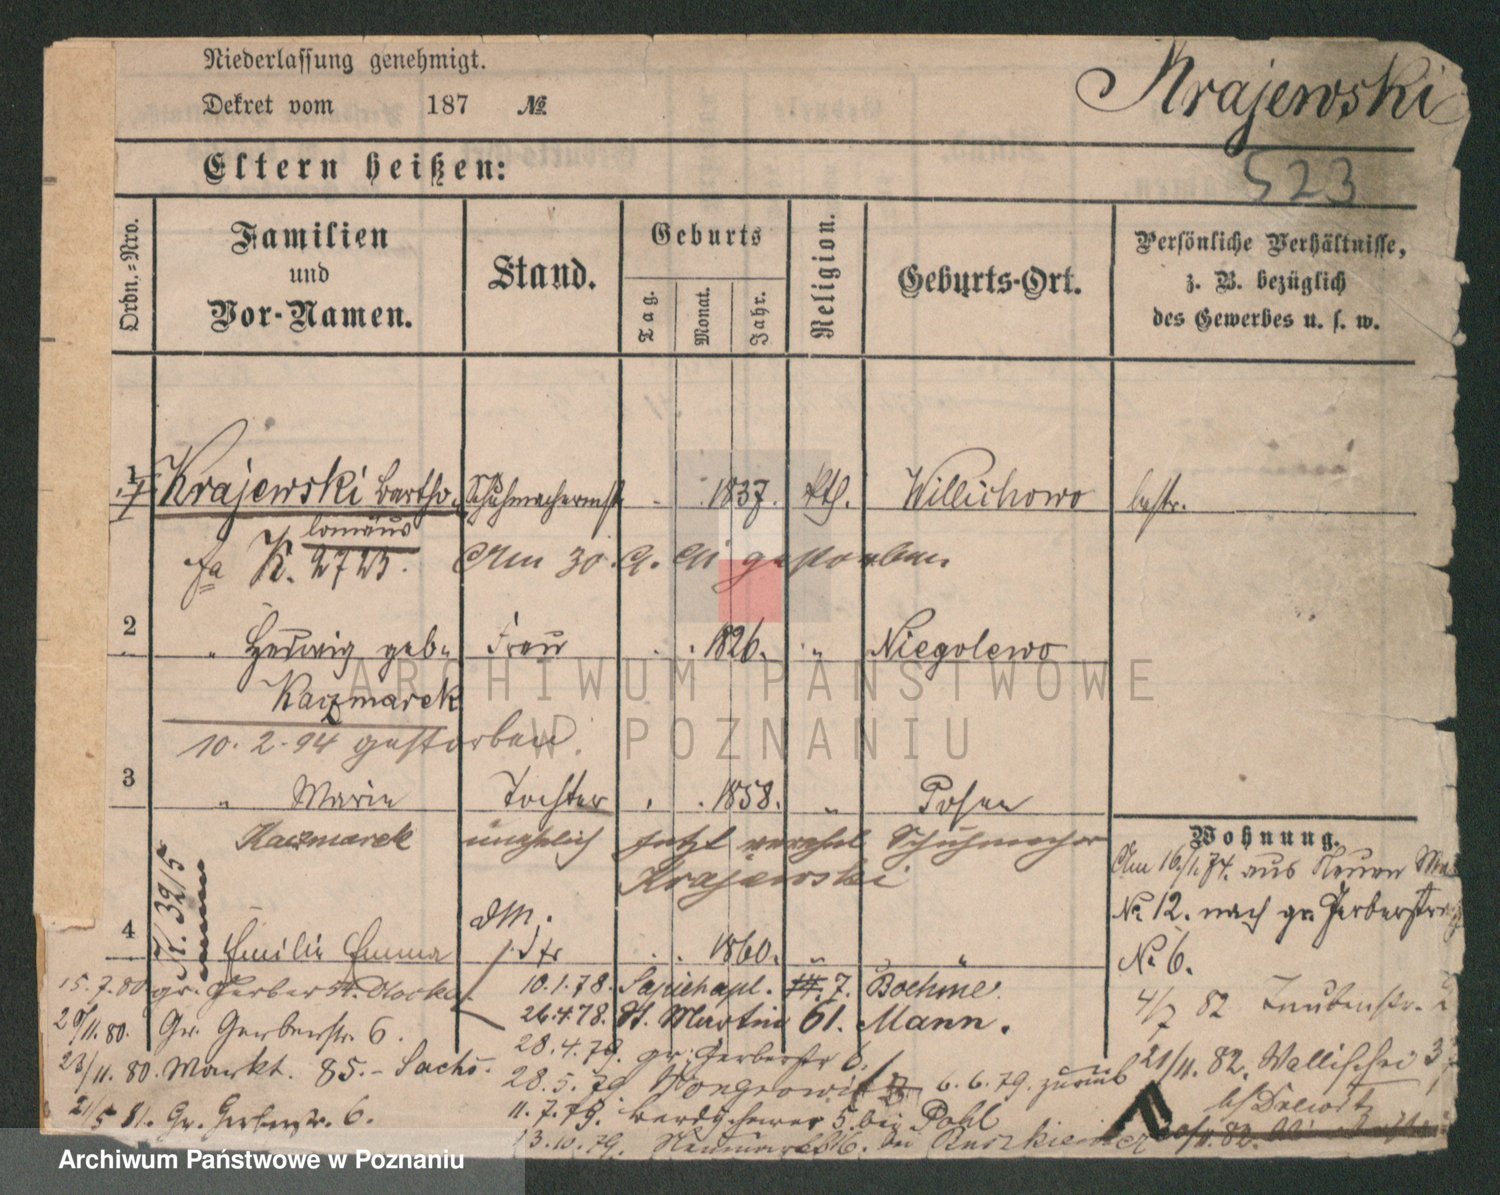 Niederlassung genehmigt.
Dekret vom 187 №
Krajewski
Eltern heißen:
523
Ordn.-Nro.
Familien
und
Vor-Namen.
Stand.
Geburts
Tag.
Monat.
Jahr.
Religion.
Geburts-Ort.
Persönliche Verhältnisse,
z. B. bezüglich
des Gewerbes u. s. w.
1 Krajewski Bartho- Schuhmachermstr 1837. kth. Willichowo bestr.
lomäus
K. 2723. Am 30. gestorben
2 " Hedwig geb. Frau 1826. " Niegolewo
Kaczmarek
10.2.94 gestorben
3 " Marie Tochter 1858. " Posen
Kaczmarek unehelich jetzt verehel Schuhmacher
Krajewski
K. 3215
4 Emilie Emma 1860. " "
Wohnung.
Am 16/1.74. aus Neuen
No 12. nach gr. Gerberstr
No 6.
4/7 82 Taubenstr. 2
21/11. 82. Wallischei 3
b/Drewitz
15.7.80 gr. Gerberst.
29/11.80. Gr. Gerberstr. 6.
23/11.80. Markt. 85. - Sachs.
21/5 81. Gr. Gerberstr. 6.
10.1.78. Sapiehapl. 7. Boehme.
26.4.78. St. Martin 61. Mann.
28.4.79. gr. Gerberstr 6.
28.5.79 6.6.79. zurück
11.7.79. 5. bei Pohl
13.10.79. Neumarkt 16. bei
ARCHIWUM PAŃSTWOWE
W POZNANIU
Archiwum Państwowe w Poznaniu